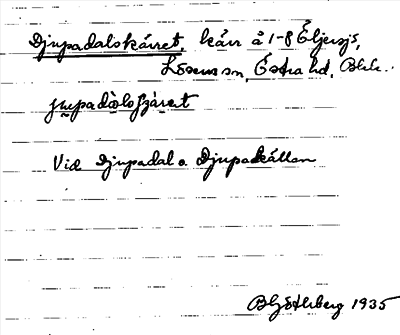 Djupadalskärret, kärr å 1-8 Eljersjö,
Lösens sn, Östra hd, Blek.
Vid Djupadal o. Djupakällan
B Götlberg 1935